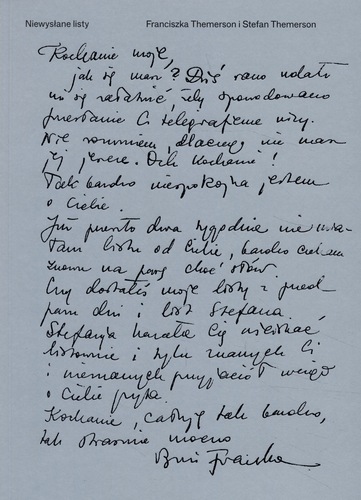 Niewysłane listy
Franciszka Themerson i Stefan Themerson
Kochanie moje,
jak się masz? Dziś rano udało
mi się załatwić, żeby spowodowano
przesłanie Ci telegraficznie wizy.
Nie rozumiem, dlaczego nie masz
jej jeszcze. Och kochanie!
Tak bardzo niespokojna jestem
o Ciebie.
Już prawie dwa tygodnie nie mia-
łam listu od Ciebie, bardzo
znowu na parę choć słów.
Czy dostałeś moje listy z przed
paru dni i list Stefana.
Stefania kazała Cię uściskać
listownie i tylu znanych Ci
i nieznanych przyjaciół wciąż
o Ciebie pyta.
Kochanie, całuję tak bardzo,
tak strasznie mocno
Franka